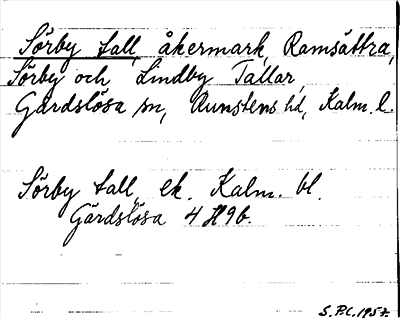 Sörby tall, åkermark, Ramsättra,
Sörby och Lindby Tallar,
Gärdslösa sn, Runstens hd, Kalm. l.
Sörby tall, ek. Kalm. bl.
Gärdslösa 4 H 9b.
S.P.C. 1957.